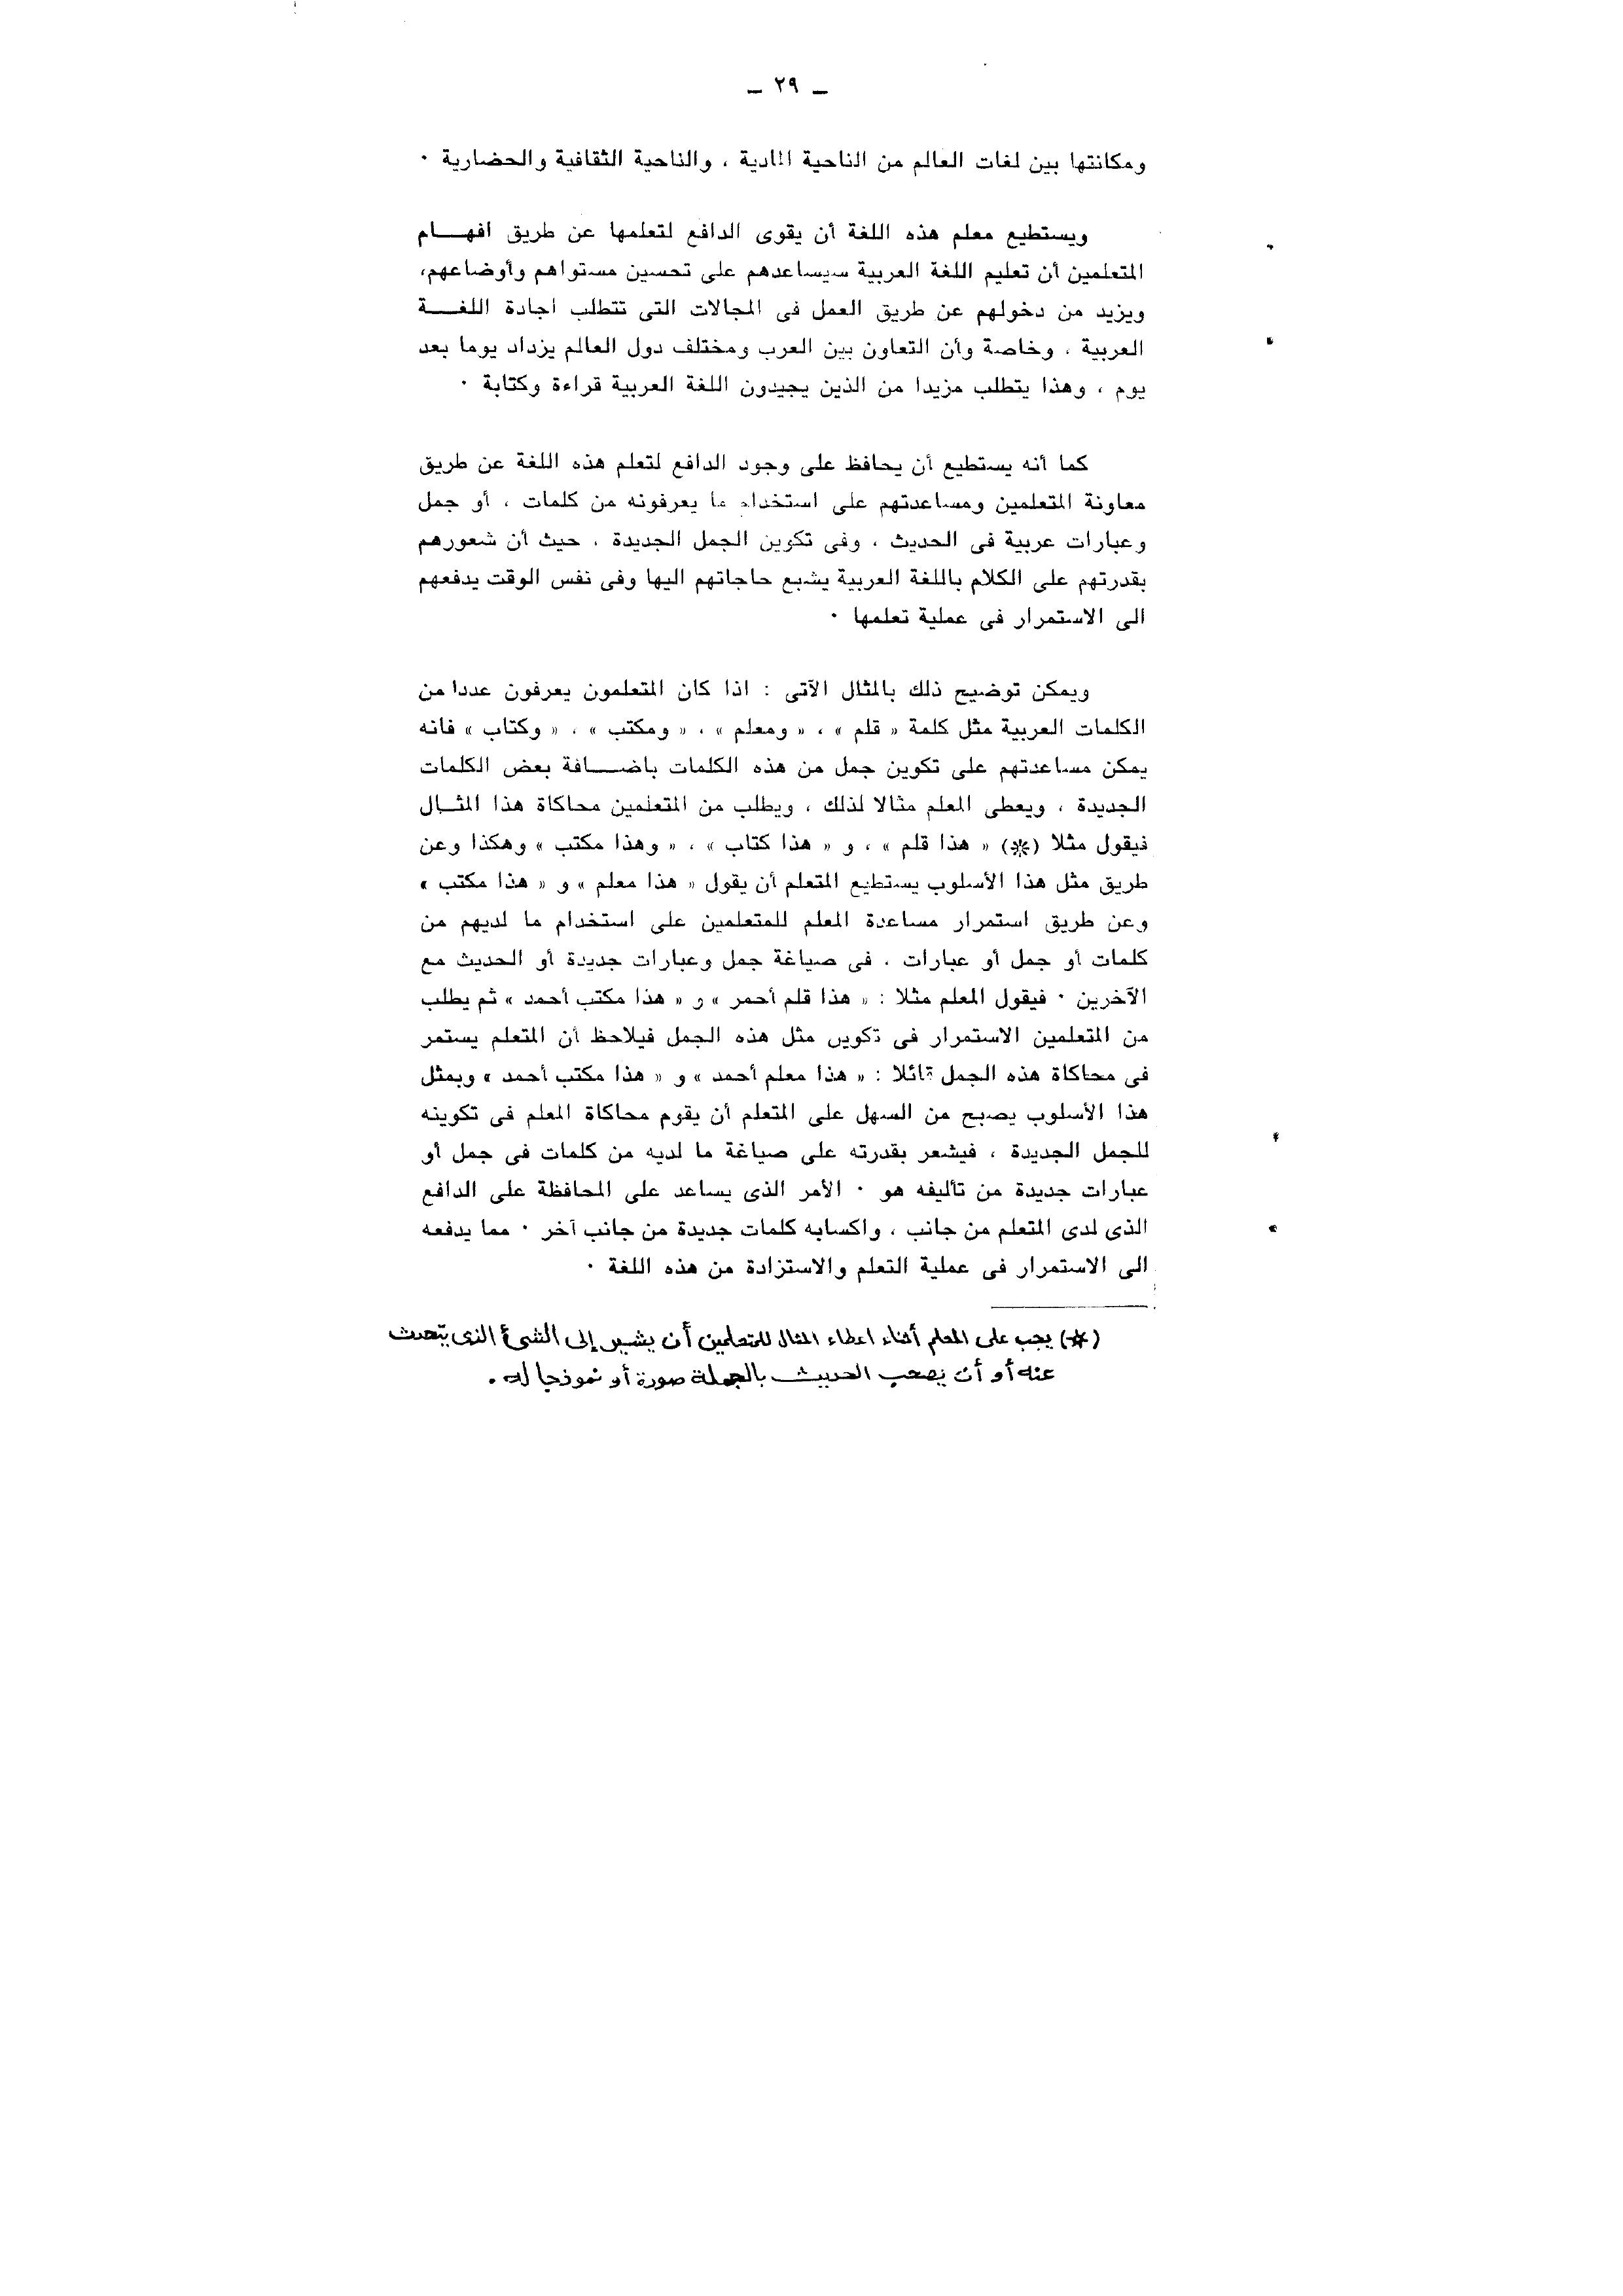 ـ ٢٩ ـ
ومكانتها بين لغات العالم من الناحية المادية ، والناحية الثقافية والحضارية ٠
ويستطيع معلم هذه اللغة أن يقوى الدافع لتعلمها عن طريق افهـــام
المتعلمين أن تعليم اللغة العربية سيساعدهم على تحسين مستواهم وأوضاعهم،
ويزيد من دخولهم عن طريق العمل فى المجالات التى تتطلب اجادة اللغـــة
العربية ، وخاصة وأن التعاون بين العرب ومختلف دول العالم يزداد يوما بعد
يوم ، وهذا يتطلب مزيدا من الذين يجيدون اللغة العربية قراءة وكتابة ٠
كما أنه يستطيع أن يحافظ على وجود الدافع لتعلم هذه اللغة عن طريق
معاونة المتعلمين ومساعدتهم على استخدام ما يعرفونه من كلمات ، أو جمل
وعبارات عربية فى الحديث ، وفى تكوين الجمل الجديدة ، حيث أن شعورهم
بقدرتهم على الكلام باللغة العربية يشبع حاجاتهم اليها وفى نفس الوقت يدفعهم
الى الاستمرار فى عملية تعلمها ٠
ويمكن توضيح ذلك بالمثال الآتى : اذا كان المتعلمون يعرفون عددا من
الكلمات العربية مثل كلمة « قلم » ، « ومعلم » ، « ومكتب » ، « وكتاب » فانه
يمكن مساعدتهم على تكوين جمل من هذه الكلمات باضـــافة بعض الكلمات
الجديدة ، ويعطى المعلم مثالا لذلك ، ويطلب من المتعلمين محاكاة هذا المثــال
فيقول مثلا (*) « هذا قلم » ، و « هذا كتاب » ، « وهذا مكتب » وهكذا وعن
طريق مثل هذا الأسلوب يستطيع المتعلم أن يقول « هذا معلم » و « هذا مكتب »
وعن طريق استمرار مساعدة المعلم للمتعلمين على استخدام ما لديهم من
كلمات أو جمل أو عبارات ، فى صياغة جمل وعبارات جديدة أو الحديث مع
الآخرين ٠ فيقول المعلم مثلا : « هذا قلم أحمر » و « هذا مكتب أحمد » ثم يطلب
من المتعلمين الاستمرار فى تكوين مثل هذه الجمل فيلاحظ أن المتعلم يستمر
فى محاكاة هذه الجمل قائلا : « هذا معلم أحمد » و « هذا مكتب أحمد » وبمثل
هذا الأسلوب يصبح من السهل على المتعلم أن يقوم محاكاة المعلم فى تكوينه
للجمل الجديدة ، فيشعر بقدرته على صياغة ما لديه من كلمات فى جمل أو
عبارات جديدة من تأليفه هو ٠ الأمر الذى يساعد على المحافظة على الدافع
الذى لدى المتعلم من جانب ، واكسابه كلمات جديدة من جانب آخر ٠ مما يدفعه
الى الاستمرار فى عملية التعلم والاستزادة من هذه اللغة ٠
(*) يجب على المعلم أثناء اعطاء المثال للمتعلمين أن يشير إلى الشئ الذى يتحدث
عنه أو أن يصحب الحديث بالجملة صورة أو نموذجا له .